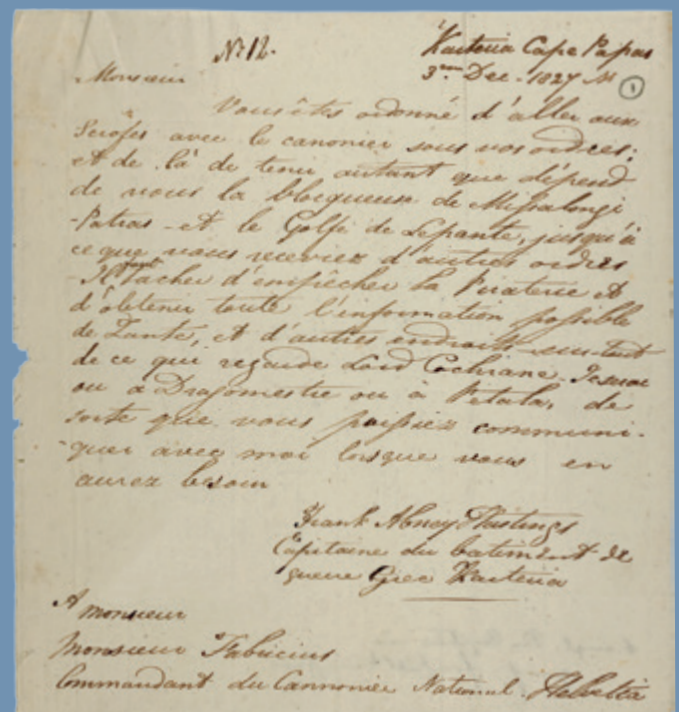 No 12.
Karteria Cape Papas
3me Dec - 1827
①
Monsieur
Vous êtes ordonné d'aller aux
Scrofes avec le canonier sous vos ordres;
et de là de tenir autant que dépend
de vous la blocqueus de Missalongi
-Patras- et le Golfe de Lepante, jusqu'à
ce que vous receviez d'autres ordres
Il faut tacher d'empêcher la Piraterie et
d'obtenir toute l'information possible
de Zante, et d'autres endroits surtout
de ce qui regarde Lord Cochrane. Je serai
ou à Dragomestre ou à Petala, de
sorte que vous puissiez communi-
quer avec moi lorsque vous en
aurez besoin
Frank Abney Hastings
Capitaine du batiment de
guerre Grec Karteria
A monsieur
Monsieur Fabricius
Commandant du Cannonier National Helvetia